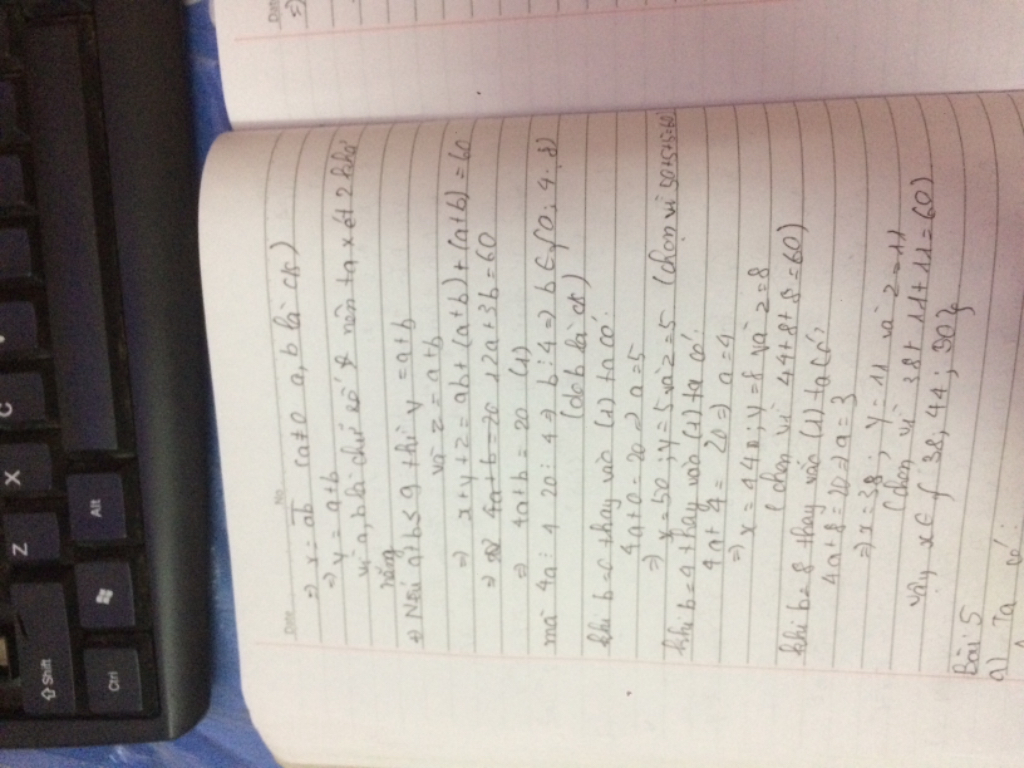 Date No
=> x = ab (a≠0 a, b là cs)
=> y = a+b
vì a, b là chữ số nên ta xét 2 khả
năng
+) Nếu a+b ≤ 9 thì y = a+b
và z = a+b
=> x+y+z = ab + (a+b) + (a+b) = 60
=> 12a + 3b = 60
=> 4a+b = 20 (1)
mà 4a ⋮ 4 20 ⋮ 4 => b ⋮ 4 => b ∈ {0; 4; 8}
(do b là cs)
khi b = 0 thay vào (1) ta có:
4a+0 = 20 => a = 5
=> x = 50; y = 5 và z = 5 (chọn vì 50+5+5=60)
khi b = 4 thay vào (1) ta có
4a + 4 = 20 => a = 4
=> x = 44; y = 8 và z = 8
(chọn vì 44+8+8=60)
khi b = 8 thay vào (1) ta có
4a + 8 = 20 => a = 3
=> x = 38; y = 11 và z = 11
(chọn vì 38 + 11 + 11 = 60)
vậy x ∈ {38, 44; 50}
Bài 5
a) Ta có:
Date
=>
Shift
Z
X
C
Ctrl
Alt